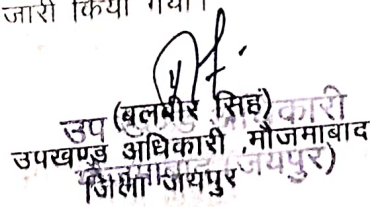 जारी किया गया।
(बलबीर सिंह)
उप कारी
उपखण्ड अधिकारी ,मौजमाबाद
जयपुर)
जिला जयपुर